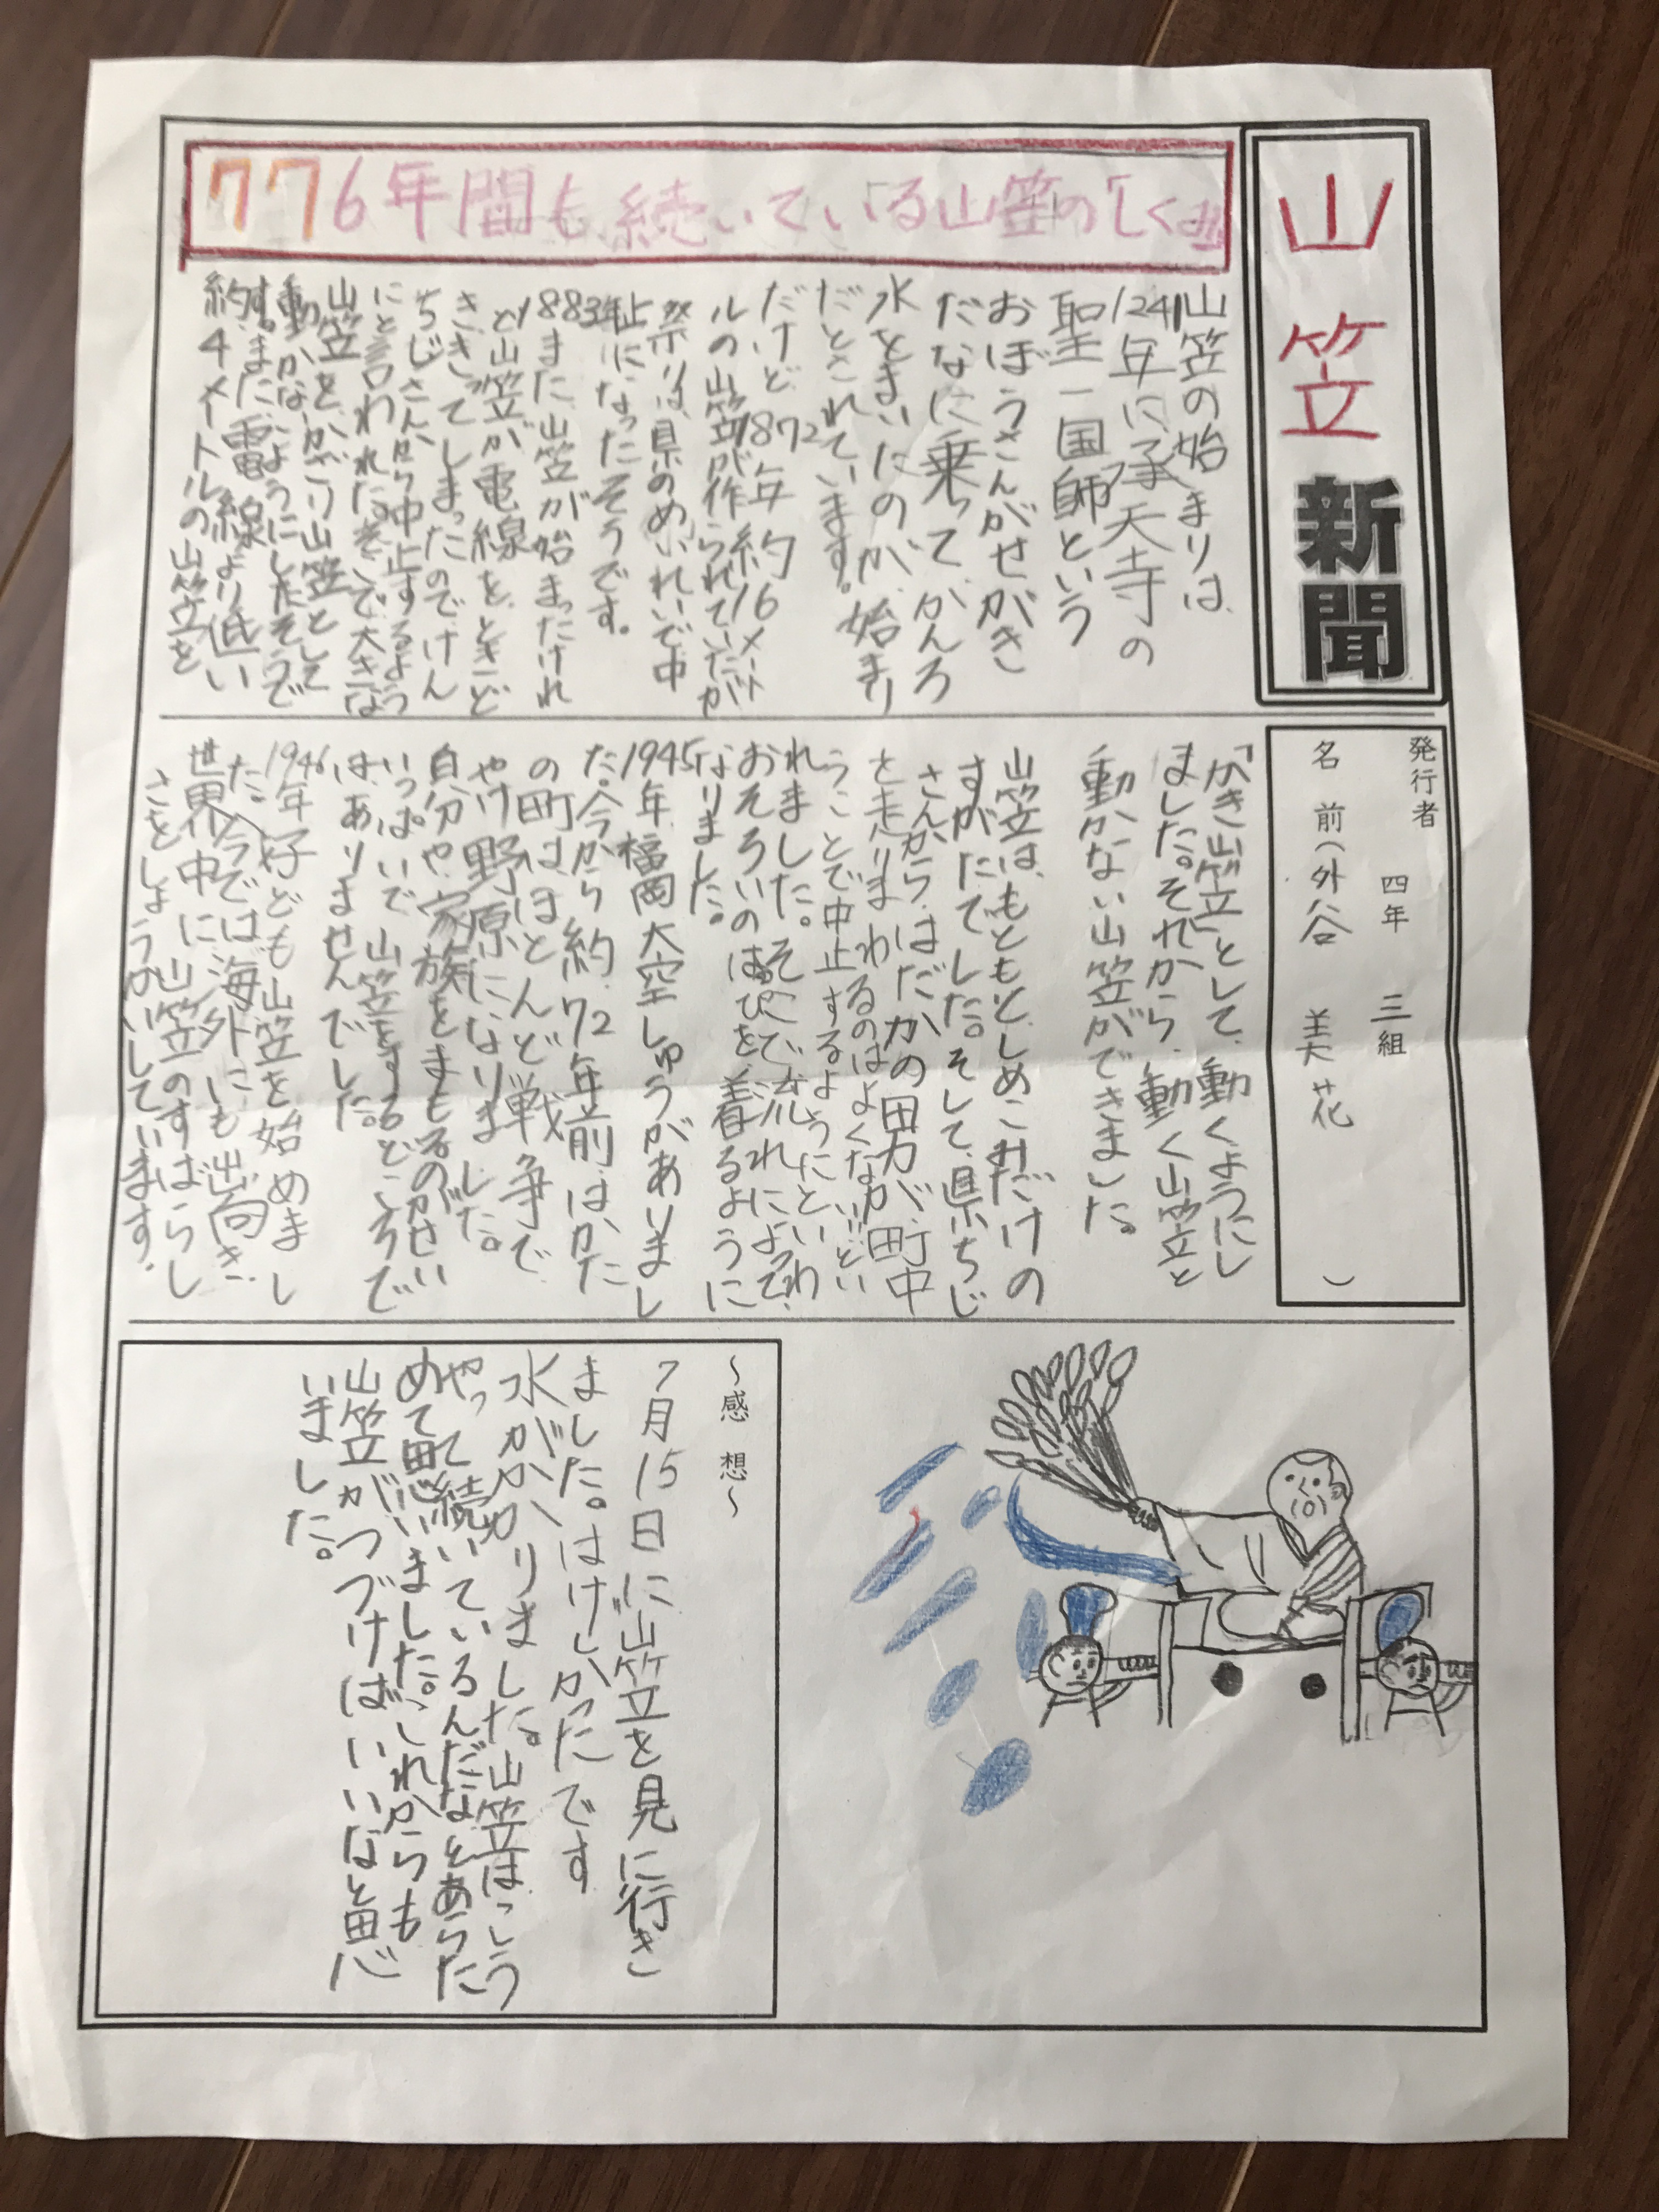 山笠新聞
776年間も続いている山笠の「しくみ」
発行者 四年 三組
名前(外谷 美花 )
山笠の始まりは、
1241年に承天寺の
聖一国師という
おぼうさんがせがき
だなに乗って、かんろ
水をまいたのが、始まり
だとされています。
だけど、1872年約16メート
ルの山笠が作られていたが
祭りは、県のめいれいで中
止になったそうです。
1883年また、山笠が始まったけれ
ど山笠が電線を、ときど
ききってしまったので、けん
ちじさんから中止するよう
にと言われた。そこで大きな
山笠を、かざり山笠として
動かないようにしたそうで
す。また、電線より低い
約4メートルの山笠を
「かき山笠」として、動くようにし
ました。それから、動く山笠と
動かない山笠ができました。
山笠は、もともと、しめこみだけの
すがたでした。そして、県ちじ
さんから、はだかの男が、町中
を走りまわるのはよくない。」とい
うことで中止するようにといわ
れました。そこで、流れによって、
おそろいのはっぴを着るように
なりました。
1945年、福岡大空しゅうがありまし
た。今から約72年前は、かた
の町は、ほとんど戦争で
やけ野原になりました。
自分や、家族をまもるのがせい
いっぱいで、山笠をするどころで
は、ありませんでした。
1946年、子ども山笠を始めまし
た。今では、海外にも出向き、
世界中に山笠のすばらし
さをしょうかいしています。
～感想～
7月15日に山笠を見に行き
ました。はげしかったです
水がかかりました。山笠はこう
やって続いているんだなとあらた
めて思いました。これからも
山笠がつづけばいいなと思
いました。